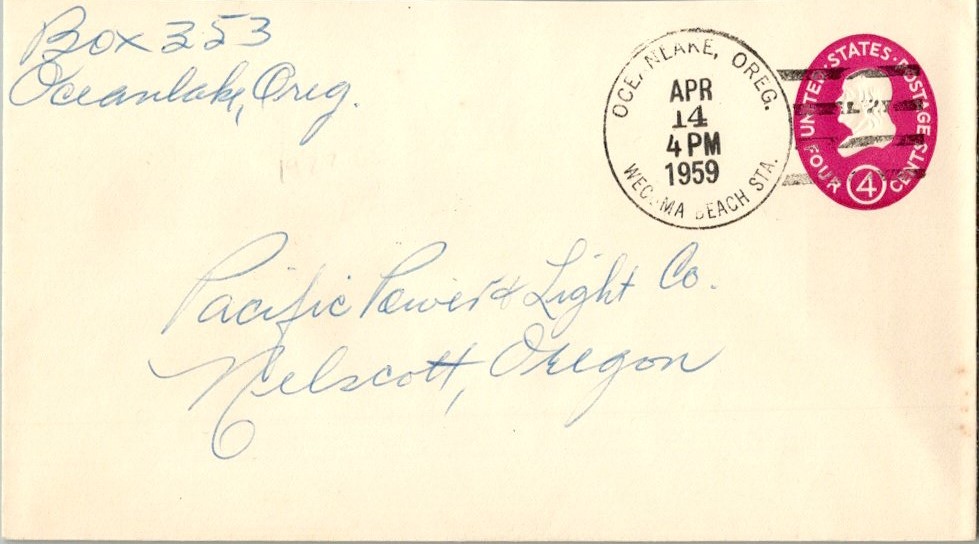 Box 353
Oceanlake, Oreg.
OCEANLAKE, OREG.
APR
14
4 PM
1959
WECOMA BEACH STA.
UNITED · STATES · POSTAGE
FOUR 4 CENTS
Pacific Power & Light Co.
Nelscott, Oregon